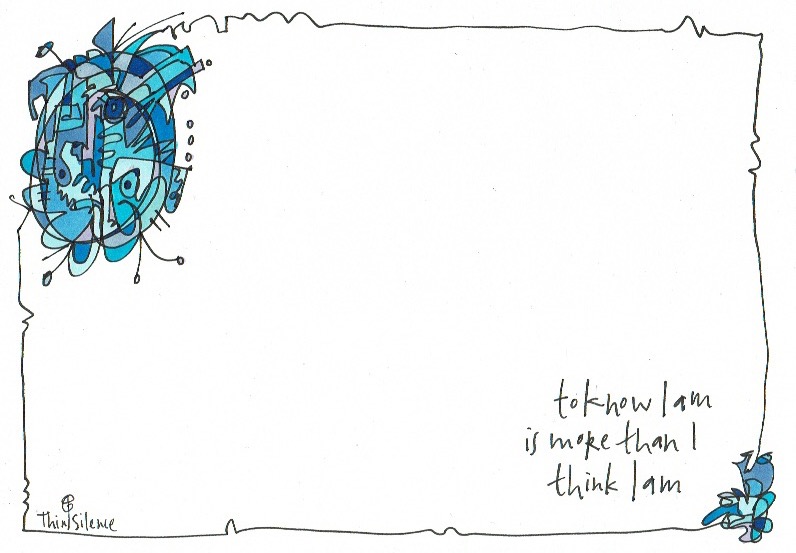 to know I am
is more than I
think I am
ThinkSilence